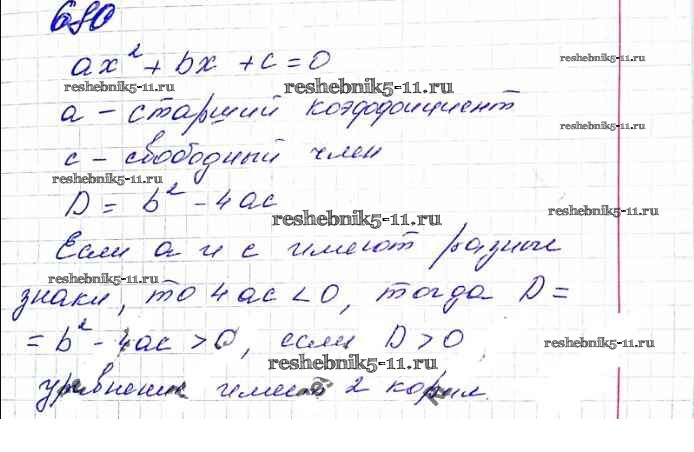 680
ax² + bx + c = 0
reshebnik5-11.ru
reshebnik5-11.ru
reshebnik5-11.ru
a – старший коэффициент
reshebnik5-11.ru
c – свободный член
reshebnik5-11.ru
D = b² - 4ac
reshebnik5-11.ru
reshebnik5-11.ru
Если a и c имеют разные
reshebnik5-11.ru
знаки, то 4ac < 0, тогда D =
= b² - 4ac > 0, если D > 0,
reshebnik5-11.ru
reshebnik5-11.ru
уравнение имеет 2 корня.